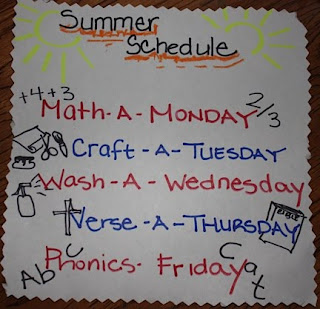 Summer
Schedule
+4+3
Math-A-MONDAY 2/3
Craft-A-TUESDAY
Wash-A-Wednesday
Verse-A-THURSDAY BIBLE
Phonics-Friday
Abc
Cat